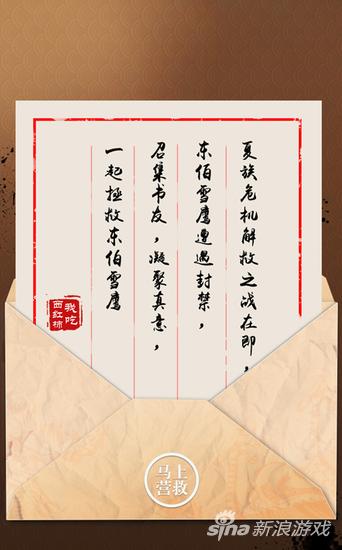 夏族危机解救之战在即，
东伯雪鹰遭遇封禁，
召集书友，凝聚真意，
一起拯救东伯雪鹰
我吃
西红柿
马上
营救
sina新浪游戏